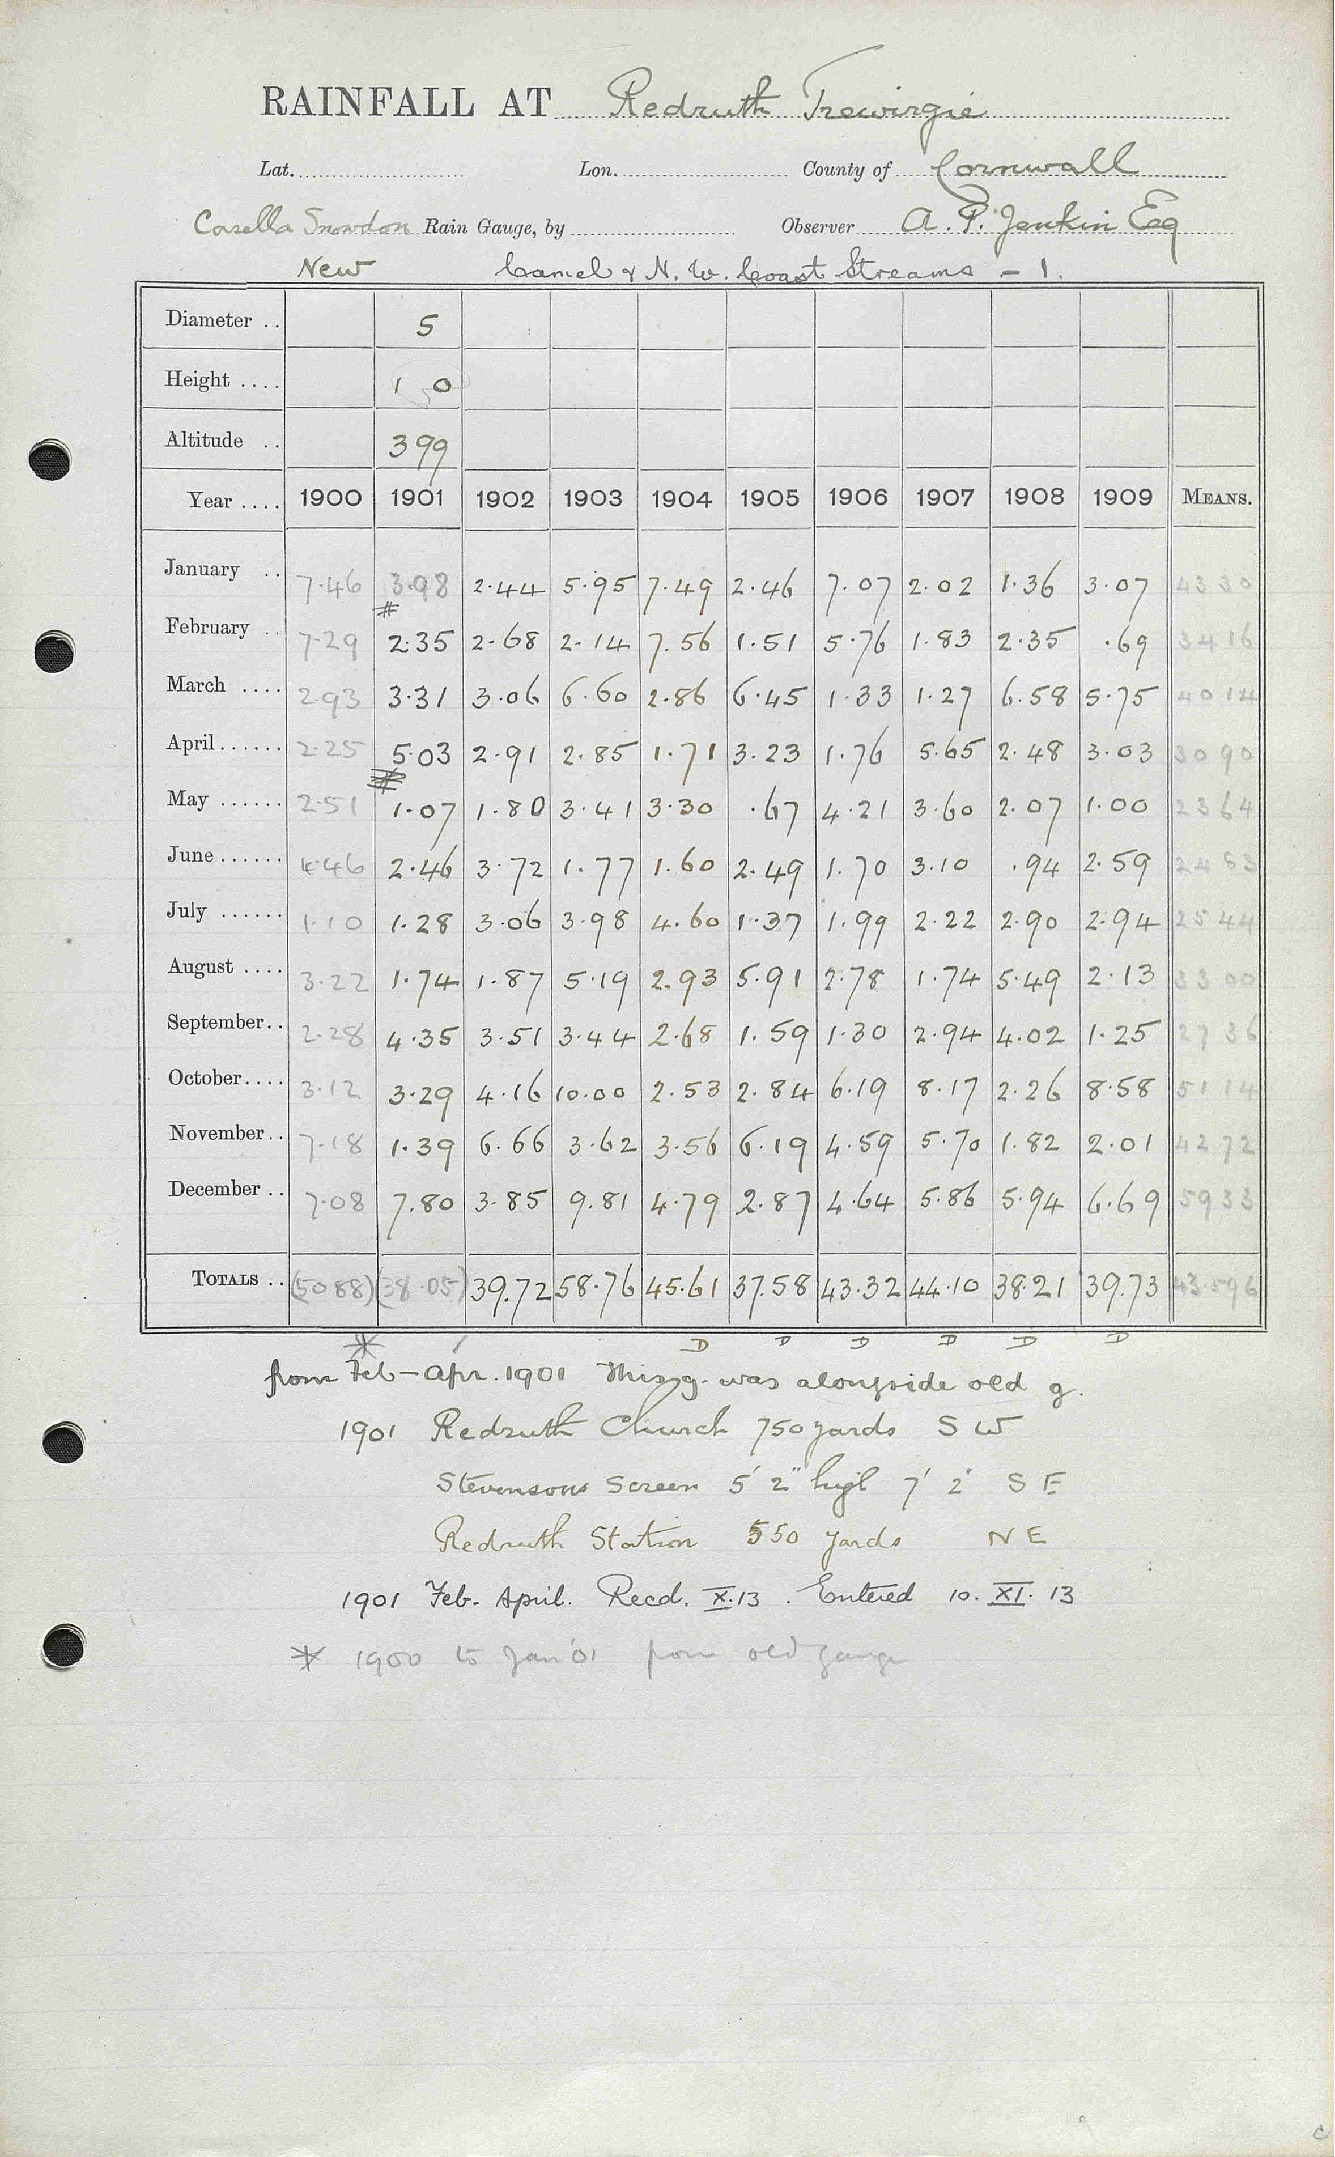 RAINFALL AT Redruth Trewirgie
Lat. Lon. County of Cornwall
Casella Snowdon Rain Gauge, by Observer A. P. Jenkin Esq
New Camel & N. W. Coast Streams - 1.
Diameter .. 5
Height .... 1 0
Altitude .. 399
Year .... 1900 1901 1902 1903 1904 1905 1906 1907 1908 1909 MEANS.
January .. 7.46 3.98 2.44 5.95 7.49 2.46 7.07 2.02 1.36 3.07 43 30
February .. 7.29 2.35 2.68 2.14 7.56 1.51 5.76 1.83 2.35 .69 34 16
March .... 2.93 3.31 3.06 6.60 2.86 6.45 1.33 1.27 6.58 5.75 40 14
April ...... 2.25 5.03 2.91 2.85 1.71 3.23 1.76 5.65 2.48 3.03 30 90
May ...... 2.51 1.07 1.80 3.41 3.30 .67 4.21 3.60 2.07 1.00 23 64
June ...... 4.46 2.46 3.72 1.77 1.60 2.49 1.70 3.10 .94 2.59
July ...... 1.10 1.28 3.06 3.98 4.60 1.37 1.99 2.22 2.90 2.94 25 44
August .... 3.22 1.74 1.87 5.19 2.93 5.91 2.78 1.74 5.49 2.13 33 00
September.. 2.28 4.35 3.51 3.44 2.68 1.59 1.30 2.94 4.02 1.25 27 36
October.... 3.12 3.29 4.16 10.00 2.53 2.84 6.19 8.17 2.26 8.58 51 14
November.. 7.18 1.39 6.66 3.62 3.56 6.19 4.59 5.70 1.82 2.01 42 72
December .. 7.08 7.80 3.85 9.81 4.79 2.87 4.64 5.86 5.94 6.69 59 33
TOTALS .. (50 88) (38.05) 39.72 58.76 45.61 37.58 43.32 44.10 38.21 39.73 43.596
* D D D D D D
from Feb - Apr. 1901 This g. was alongside old g.
1901 Redruth Church 750 yards S W
Stevensons Screen 5' 2" high 7' 2" S E
Redruth Station 550 yards N E
1901 Feb. April. Recd. X.13. Entered 10. XI. 13
* 1900 to Jan '01 from old gauge